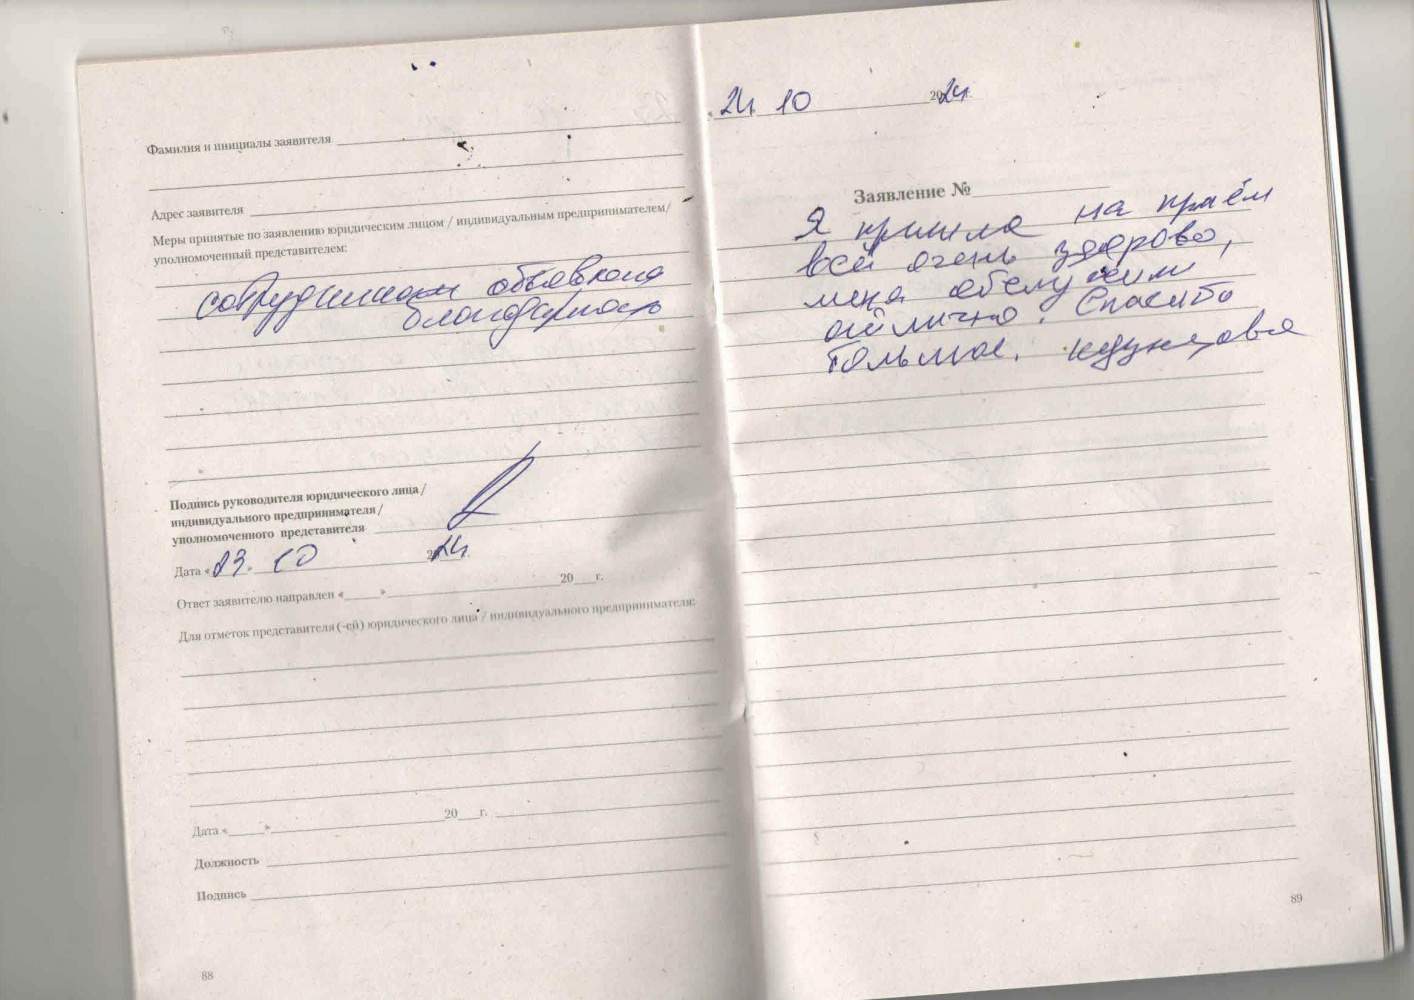 Фамилия и инициалы заявителя
Адрес заявителя
Меры принятые по заявлению юридическим лицом / индивидуальным предпринимателем/
уполномоченный представителем:
сотрудникам объявлена
благодарность
Подпись руководителя юридического лица /
индивидуального предпринимателя /
уполномоченного представителя
Дата «23» 10 2024.
Ответ заявителю направлен « » 20 г.
Для отметок представителя (-ей) юридического лица / индивидуального предпринимателя:
Дата « » 20 г.
Должность
Подпись
88
24 10 2024
Заявление №
Я пришла на приём
всё очень здорово,
меня обслужили
отлично. Спасибо
большое.
89